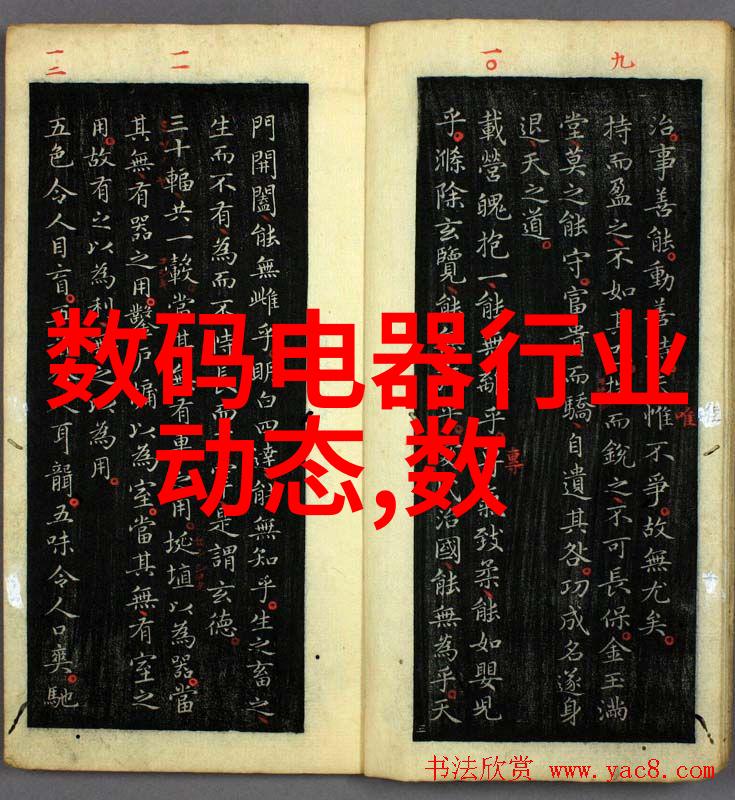 九
治。事善能。動善惟不爭。故無尤矣。
唯
持而盈之、不如其而銳之、不可長保。金玉滿
堂、莫之能守。富貴而驕、自遺其咎。功成名遂身
退、天之道。
一〇
載營魄抱一、能無離乎。致柔、能如嬰兒
專
乎。滌除玄覽、能乎。治國、能無為乎。天
一一
門開闔、能無雌乎。明白四達、能無知乎。生之畜之、
生而不有、為而不恃、長而是謂玄德。
三十輻、共一轂、當其無有車用。埏埴以為器、當
其無、有器之用。鑿戶牖以為室。當其無、有室之
用。故有之以為利之為用。
一二
五色令人目盲。五人耳聾。五味令人口爽。馳
数码电器行业
动态,数
书法欣赏 www.yac8.com